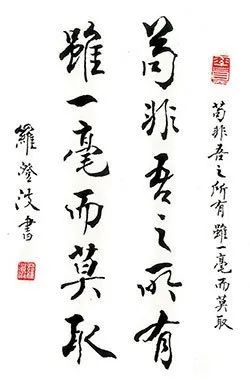 苟非吾之所有雖一毫而莫取
苟非吾之所有
雖一毫而莫取
羅書